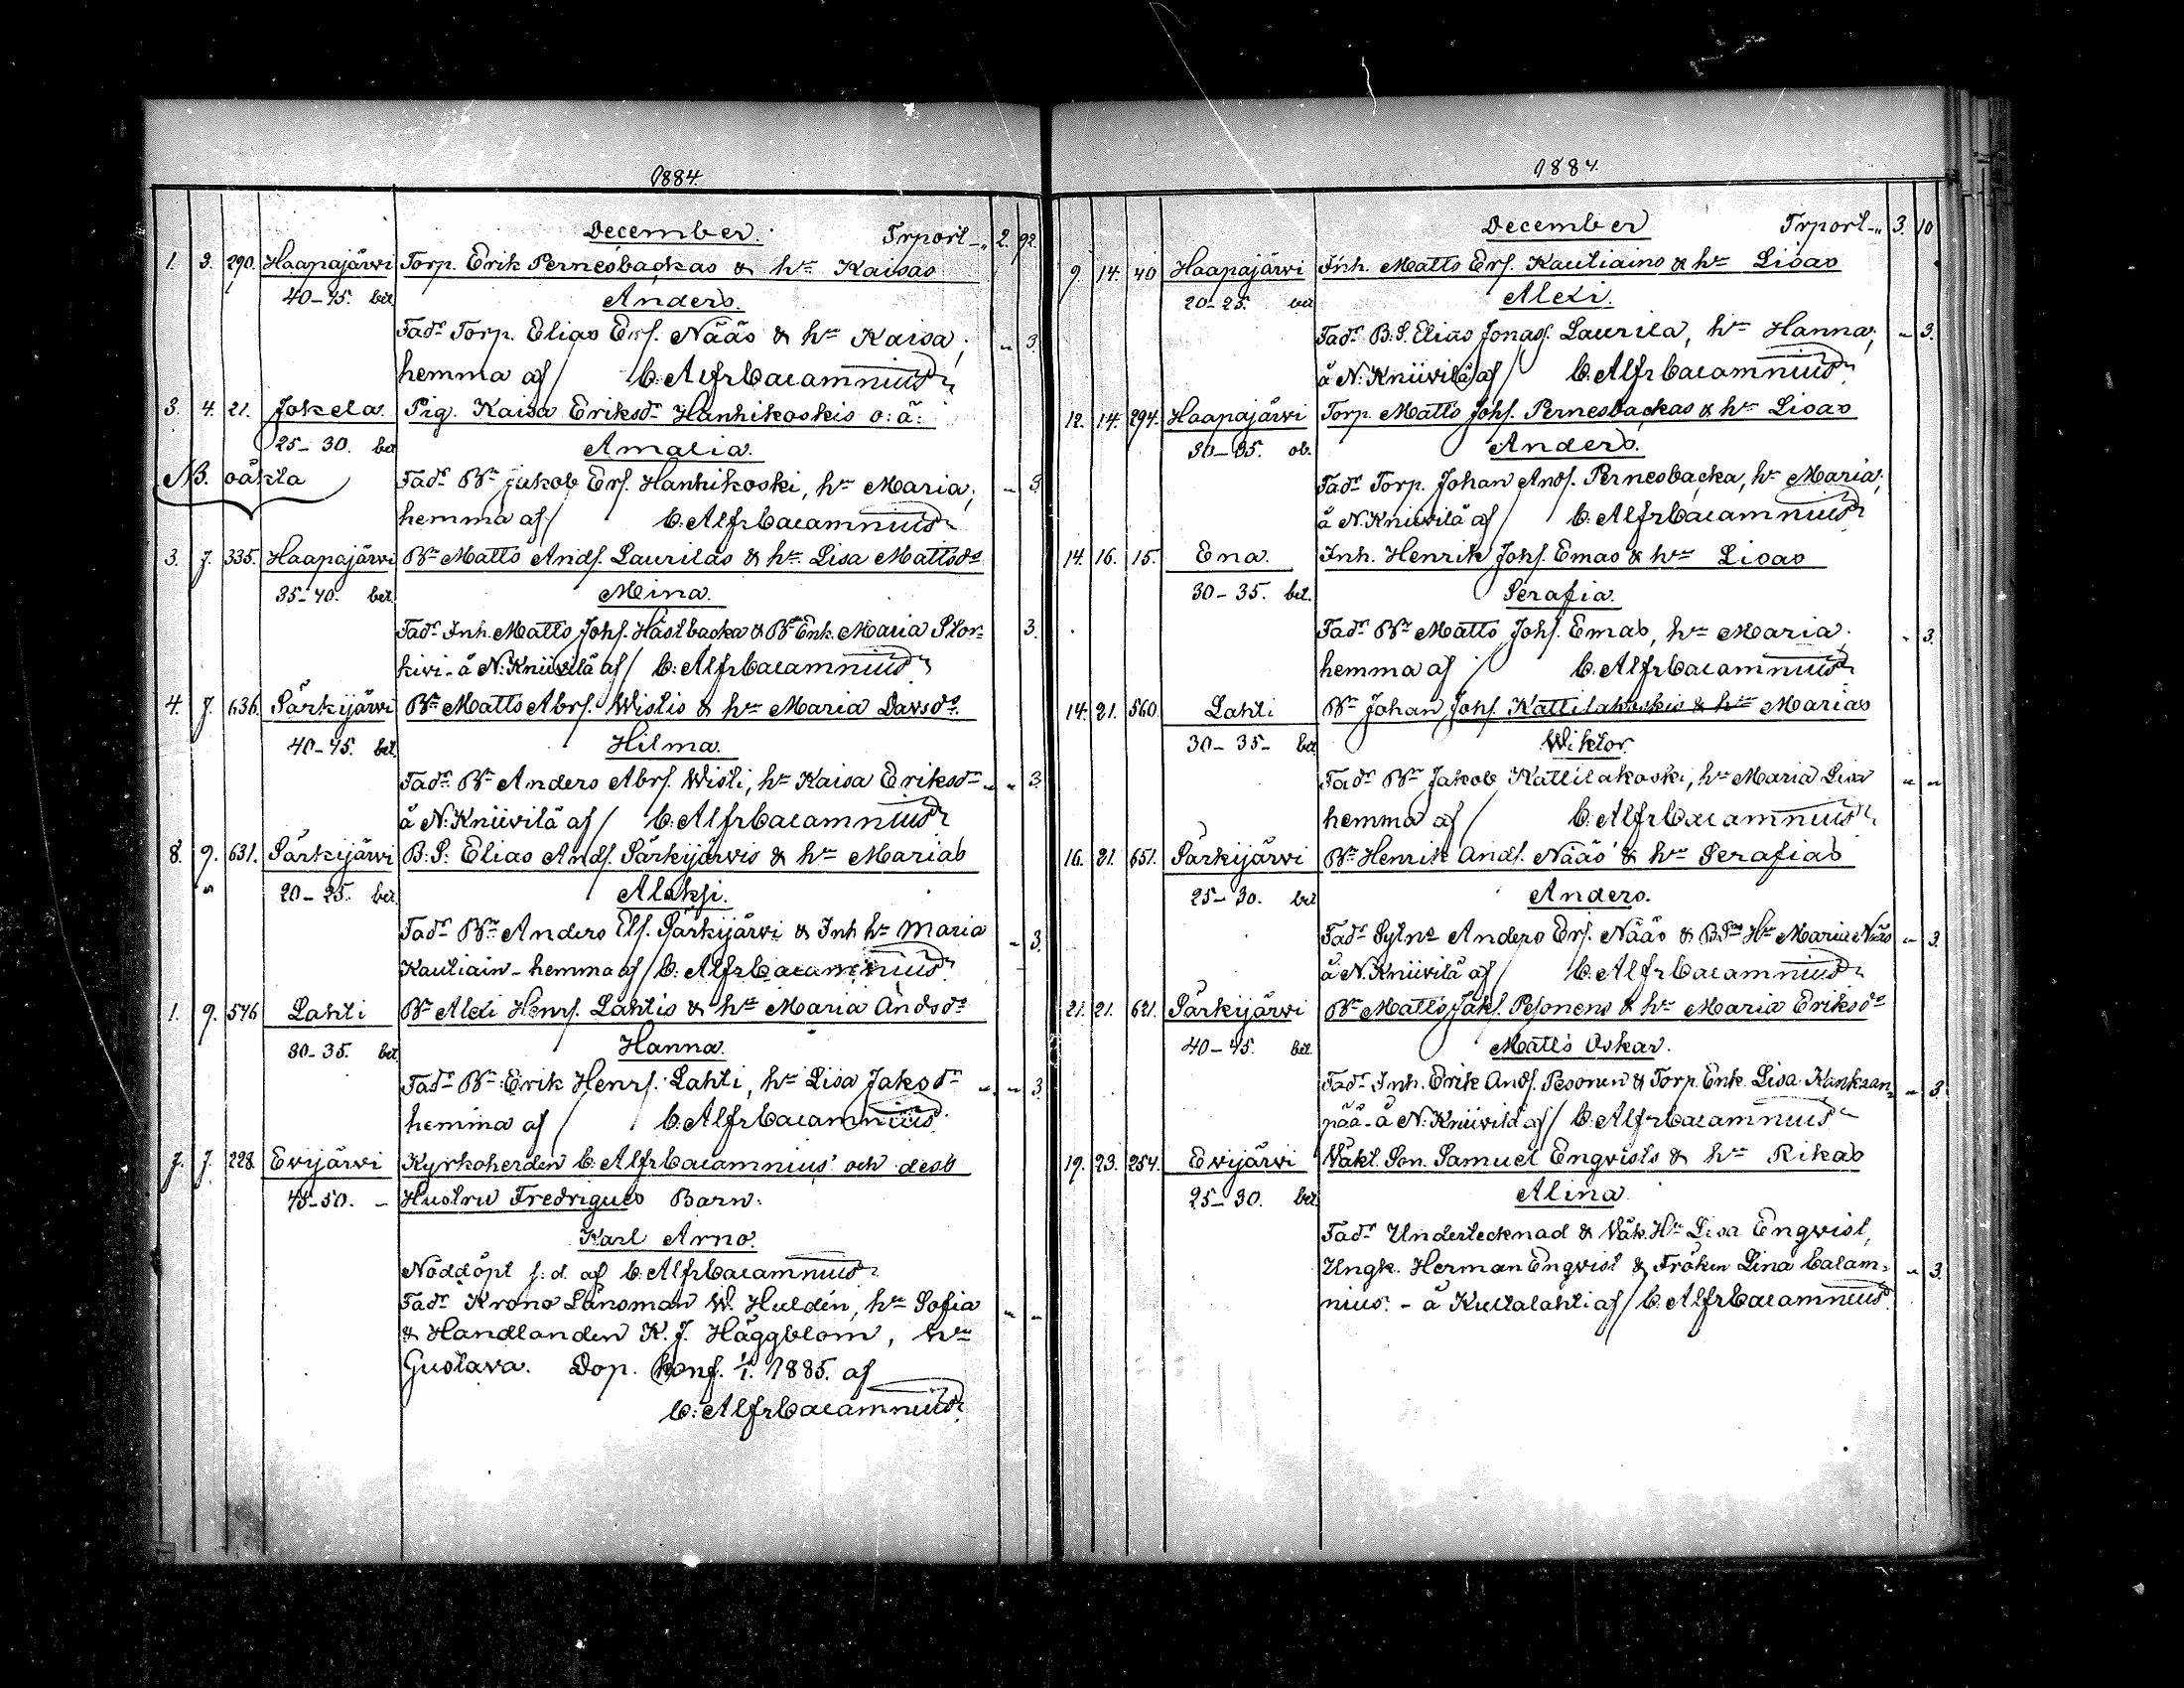 1884.
December. Trport - „ 2. 92.
1. 3. 290. Haapajärvi Torp. Erik Pernesbackas & hu Kaisas
40-45. bet Anders.
Fadr Torp. Elias Ersf. Nääs & hu Kaisa; „ 3.
hemma af / C: Alfr Calamnius
3. 4. 21. Jokela. Pig. Kaisa Eriksdr Hanhikoskis o: ä:
25-30. bet Amalia.
NB. oäkta Fadr Bn Jakob Ersf. Hanhikoski, hu Maria; - 3.
hemma af / C: Alfr Calamnius
3. 7. 335. Haapajärvi Bn Matts Andsf. Laurilas & hu Lisa Mattsdr
35-40. bet. Mina.
Fadr Inh. Matts Johsf. Hästbacka & Bn Enk. Maria Stor- 3.
kivi - å N: Kniivilä af / C: Alfr Calamnius
4. 7. 636. Särkijärvi Bn Matts Abrsf. Wistis & hu Maria Davsdr.
40-45. bet. Hilma.
Fadr Bn Anders Abrsf. Wisti, hu Kaisa Eriksdr - „ 3.
å N: Kniivilä af / C: Alfr Calamnius
8. 9. 631. Särkijärvi B. S: Elias Andsf. Särkijärvis & hu Marias
20-25. bet. Aleksi.
Fadr Bn Anders Elsf. Särkijärvi & Inh hu Maria - 3.
Kautiain - hemma af / C: Alfr Calamnius
1. 9. 546 Lahti Bn Alexi Henrsf. Lahtis & hu Maria Andsdr
30-35. bet Hanna.
Fadr Bn Erik Henrsf. Lahti, hu Lisa Jaksdr - „ 3.
hemma af / C: Alfr Calamnius
7. 7. 228. Evijärvi Kyrkoherden C: Alfr Calamnius' och dess
45-50. - Hustru Fredriques Barn:
Karl Arno.
Nöddöpt s: d. af C: Alfr Calamnius
Fadr Krono Länsman W. Huldén, hu Sofia - -
& Handlanden K. J. Häggblom, hu
Gustava. Dop. konf. 1/1. 1885. af
C: Alfr Calamnius
1884.
December Trport - „ 3. 10
9. 14. 40 Haapajärvi Inh. Matts Ersf. Kautiains & hu Lisas
20-25. bet Alexi.
Fadr B. S. Elias Jonasf. Laurila, hu Hanna; - 3.
å N: Kniivilä af / C: Alfr Calamnius
12. 14. 294. Haapajärvi Torp. Matts Johsf. Pernesbackas & hu Lisas
30-35. ob. Anders.
Fadr Torp. Johan Andsf. Pernesbacka, hu Maria;
å N. Kniivilä af / C: Alfr Calamnius
14. 16. 15. Ena. Inh. Henrik Johsf. Emas & hu Lisas
30-35. bet. Serafia.
Fadr Bn Matts Johsf. Emas, hu Maria; - 3.
hemma af / C: Alfr Calamnius
14. 21. 560. Lahti Bn Johan Johsf. Kattilakoskis & hu Marias
30-35- bet Wiktor.
Fadr Bn Jakob Kattilakoski, hu Maria Lisa - -
hemma af / C: Alfr Calamnius
16. 21. 651. Särkijärvi Bn Henrik Andsf. Nääs' & hu Serafias
25-30. bet Anders.
Fadr Sytne Anders Ersf. Nääs & B Sns Hu Maria Nääs - 3.
å N. Kniivilä af / C: Alfr Calamnius
21. 21. 621. Särkijärvi Bn Matts Jaksf. Pesonens & hu Maria Eriksdr
40-45. bet. Matts Oskar.
Fadr Inh. Erik Andsf. Pesonen & Torp. Enk. Lisa Kankaan- - 3.
pää - å N: Kniivilä af / C: Alfr Calamnius
19. 23. 254. Evijärvi Väkt. Son. Samuel Engvists & hu Rikas
25-30. bet Alina
Fadr Undertecknad & Väk. Hu Lisa Engvist,
Ungk. Herman Engvist & Fröken Lina Calam- - 3.
nius. - å Kultalahti af / C. Alfr Calamnius